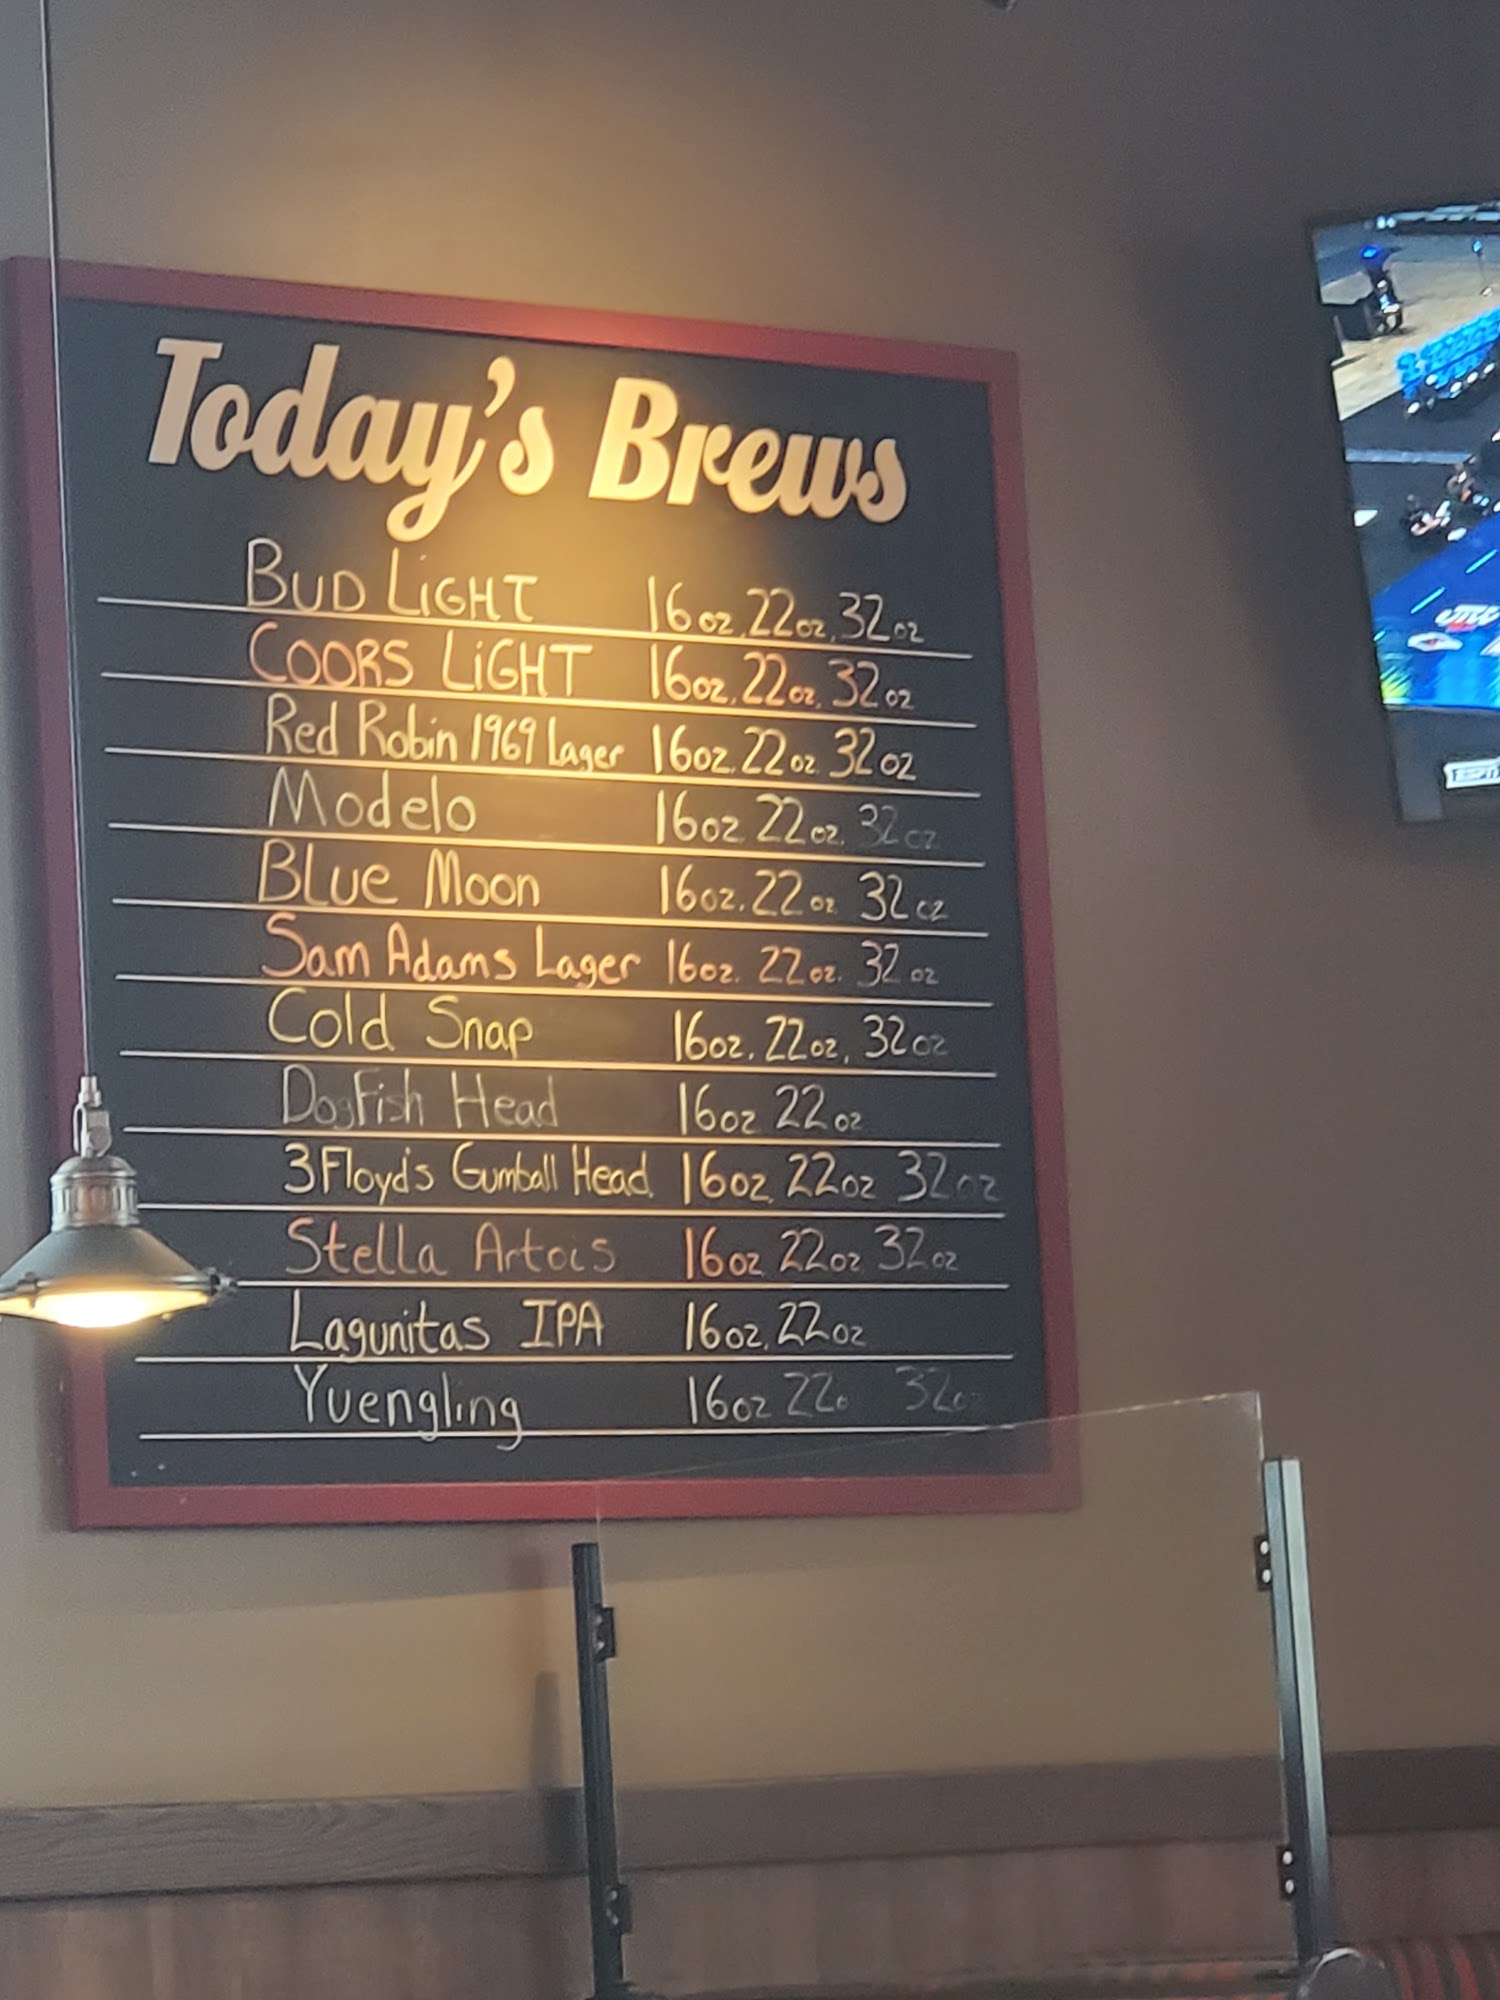 Today's Brews
BUD LiGHT 16oz, 22oz, 32oz
COORS LiGHT 16oz, 22oz, 32oz
Red Robin 1969 Lager 16oz, 22oz 32oz
Modelo 16oz 22oz, 32oz
BLue Moon 16oz, 22oz 32oz
Sam Adams Lager 16oz. 22oz. 32oz
Cold Snap 16oz, 22oz, 32oz
DogFish Head 16oz 22oz
3Floyd's Gumball Head 16oz, 22oz 32oz
Stella Artois 16oz 22oz 32oz
Lagunitas IPA 16oz, 22oz
Yuengling 16oz 22o 32oz
ESPN